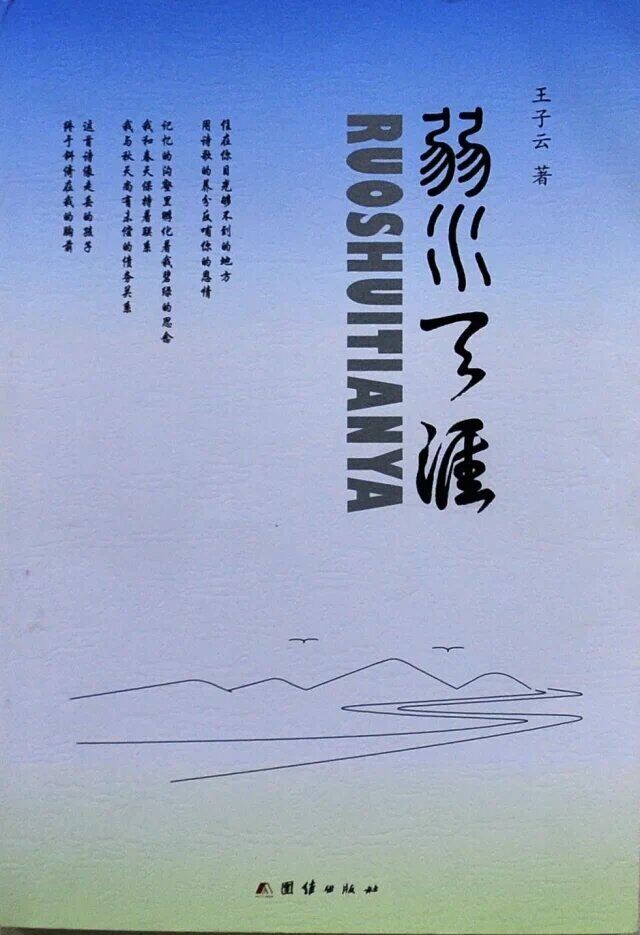 王子云 著
弱水天涯
RUOSHUITIANYA
住在你目光够不到的地方
用诗歌的养分反哺你的恩情
记忆的沟壑里孵化着我碧绿的思念
我和春天保持着联系
我与秋天尚有未偿的债务关系
这首诗像走丢的孩子
终于斜倚在我的胸前
团结出版社